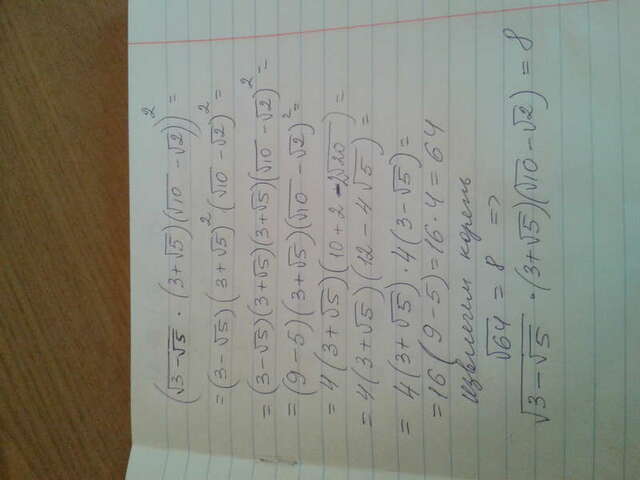 (√(3-√5) · (3+√5)(√10 - √2))² =
= (3-√5)(3+√5)²(√10 - √2)² =
= (3-√5)(3+√5)(3+√5)(√10 - √2)² =
= (9-5)(3+√5)(√10 - √2)² =
= 4(3+√5)(10+2-2√20) =
= 4(3+√5)(12-4√5) =
= 4(3+√5)·4(3-√5) =
= 16(9-5) = 16·4 = 64
Извлечем корень
√64 = 8 ⇒
√(3-√5) · (3+√5)(√10 - √2) = 8